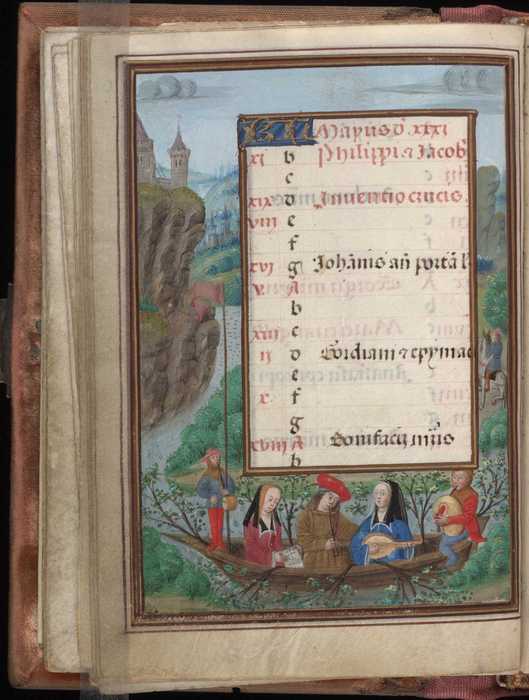 KL Mayus d. xxxi
xi b Philippi ⁊ Jacob
c
xix d Inventio crucis
viii e
f
xvi g Johānis añ portā l
v A
b
xiii c
ii d Gordiani ⁊ epymac
e
x f
g
xviii A Bonifacii mr̄is
b